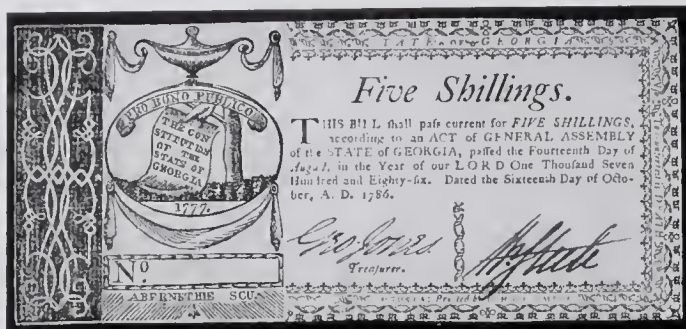 PRO BONO PUBLICO
THE CON
STITUTION
OF THE
STATE OF
GEORGIA
1777.
No.
ABERNETHIE SCU.
STATE OF GEORGIA
Five Shillings.
THIS BILL shall paſs current for FIVE SHILLINGS,
according to an ACT of GENERAL ASSEMBLY
of the STATE of GEORGIA, paſſed the Fourteenth Day of
Auguſt, in the Year of our LORD One Thouſand Seven
Hundred and Eighty-ſix. Dated the Sixteenth Day of Octo-
ber, A. D. 1786.
Geo Jones
Treaſurer.